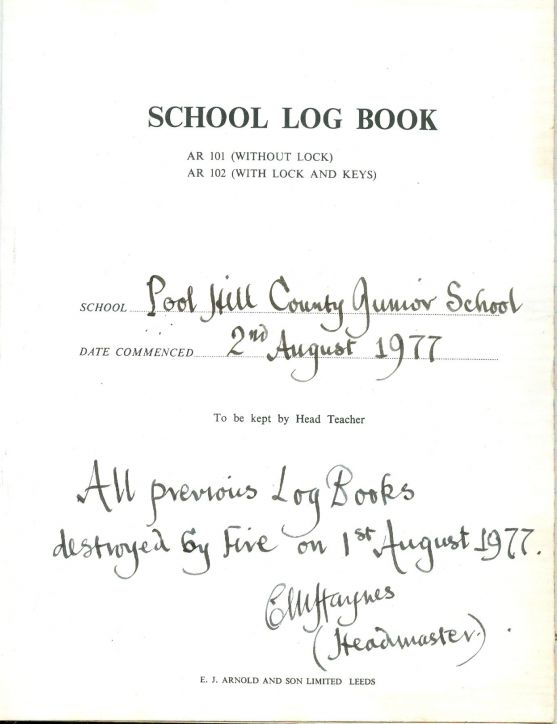 SCHOOL LOG BOOK
AR 101 (WITHOUT LOCK)
AR 102 (WITH LOCK AND KEYS)
SCHOOL Pool Hill County Junior School
DATE COMMENCED 2nd August 1977
To be kept by Head Teacher
All previous Log Books
destroyed by Fire on 1st August 1977.
E M Haynes
(Headmaster)
E. J. ARNOLD AND SON LIMITED LEEDS